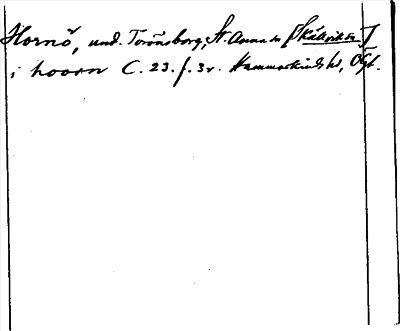 Hornö, und. Torönsborg, St. Anna sn [Skällvik sn]
i hoorn C. 23. f. 3r. Hammarkinds hd, Ögl.